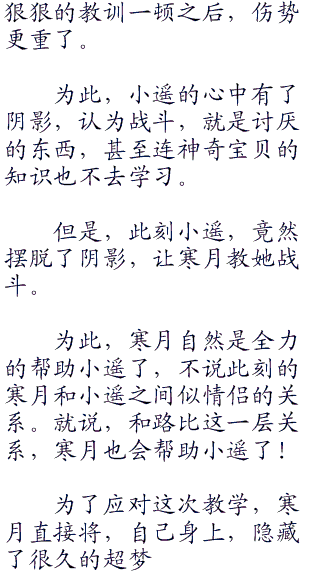 狠狠的教训一顿之后，伤势
更重了。
为此，小遥的心中有了
阴影，认为战斗，就是讨厌
的东西，甚至连神奇宝贝的
知识也不去学习。
但是，此刻小遥，竟然
摆脱了阴影，让寒月教她战
斗。
为此，寒月自然是全力
的帮助小遥了，不说此刻的
寒月和小遥之间似情侣的关
系。就说，和路比这一层关
系，寒月也会帮助小遥了！
为了应对这次教学，寒
月直接将，自己身上，隐藏
了很久的超梦